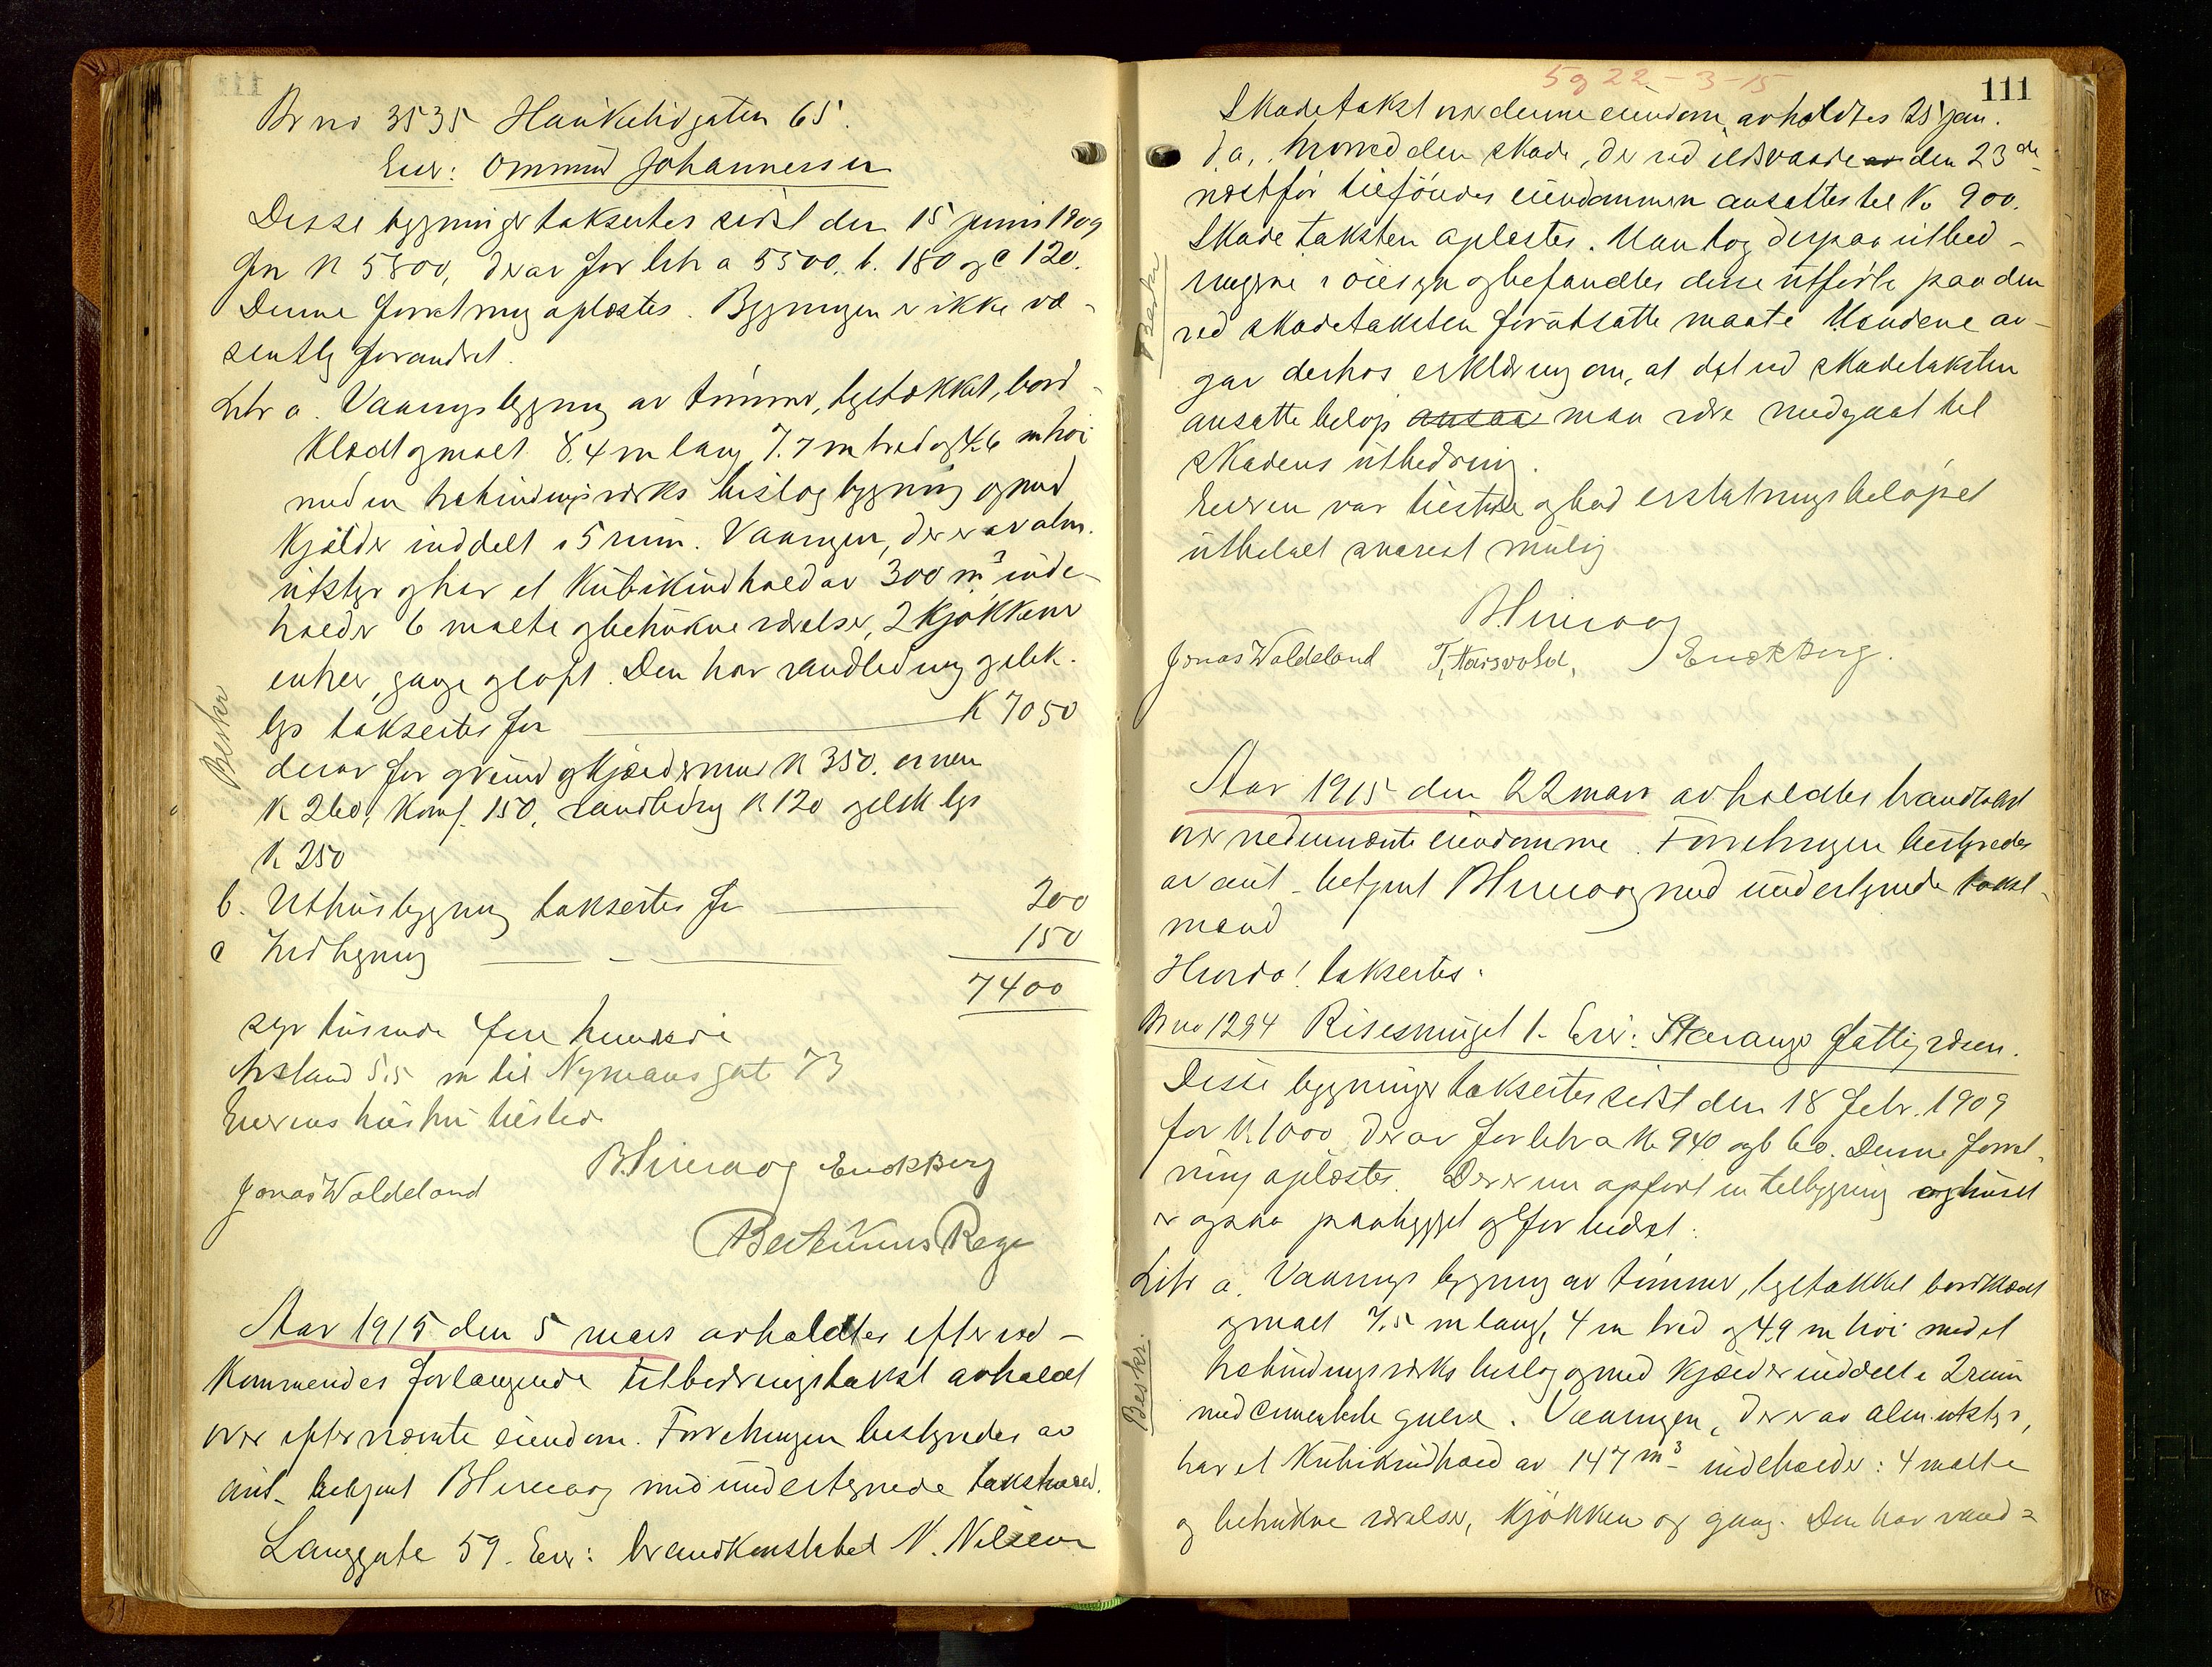 Br no 3535 Haukelidgaten 65.
Eier: Ommund Johannessen
Disse bygninger taksertes sidst den 15 juni 1909
for K 5800, derav for litr a 5500, b. 180 og c 120.
Denne forretning oplæstes. Bygningen er ikke væ-
sentlig forandret.
Litr a. Vaaningsbygning av tømmer, tegltækket, bord-
klædt og malt 8.4 m lang, 7.7 m bred og 4.6 m høi
med en halvindingsverks bislagbygning og med
kjælder inddelt i 5 rum. Vaaningen, der er av alm.
utstyr og har et kubikindhold av 300 m³, inde-
holder 6 malte og betrukne værelser, 2 kjøkkener
entree, gange og loft. Den har vandledning og elek.
lys takseertes for K 7050
derav for grund og kjældermur K 350, ovner
K 260, komf. 150, vandledng K 120 og elek lys
K 250
b. Uthusbygning taksertes for 200
c Indhegning 150
7400
syv tusinde fire hundrede
Avstand 5.5 m til Nymansgate 73
Eierens hustru tilstede
Jonas Waldeland
Bertinius Rege
Beskr
Aar 1915 den 5 mars avholdtes efter ved-
kommendes forlangende utbedringstakst avholdt
over efternævnte eiendom. Forretningen bestyredes av
aut. betjent med undertegnede takstmænd.
Langgate 59. Eier: brandkonstabel N. Nilsen
5 og 22 - 3 - 15
111
Skadetakst over denne eiendom avholdtes 25 jan.
d a, hvorved den skade, der ved ildsvaade av den 23de
næstfør tilføiedes eiendommen ansattes til K 900.
Skadetaksten oplæstes. Man tog derpaa utbed-
ringerne i øiesyn og befandtes disse utførte paa den
ved skadetaksten forutsatte maate. Mændene av-
gav derhos erklæring om, at det ved skadetaksten
ansatte beløp ansaa man være medgaat til
skadens utbedring.
Eieren var tilstede og bad erstatningsbeløpet
utbetalt snarest mulig
Jonas Waldeland
Beskr
Aar 1915 den 22 mars avholdtes brandtakst
over nedennævnte eiendomme. Forretningen bestyredes
av aut. betjent med undertegnede takst-
mænd
Hvorda! taksertes:
Br no 1294 Risesmuget 1. Eier: Stavanger fattigvæsen.
Disse bygninger taksertes sidst den 18 febr. 1909
for K 1000 derav for litr a K 940 og b 60. Denne forret-
ning oplæstes. Der er nu opført en tilbygning og huset
er ogsaa paabygget og forbedret.
Litr a. Vaanings bygning av tømmer, tegltækket bordklædt
og malt 7.5 m lang, 4 m bred og 4.9 m høi med et
halvindingsverks bislag og med kjælder inddelt i 2 rum
med cementerte gulve. Vaaningen, der er av alm. utstyr,
har et kubikindhold av 147 m³ indeholder: 4 malte
og betrukne værelser, kjøkken og gang. Den har vand-
Beskr.